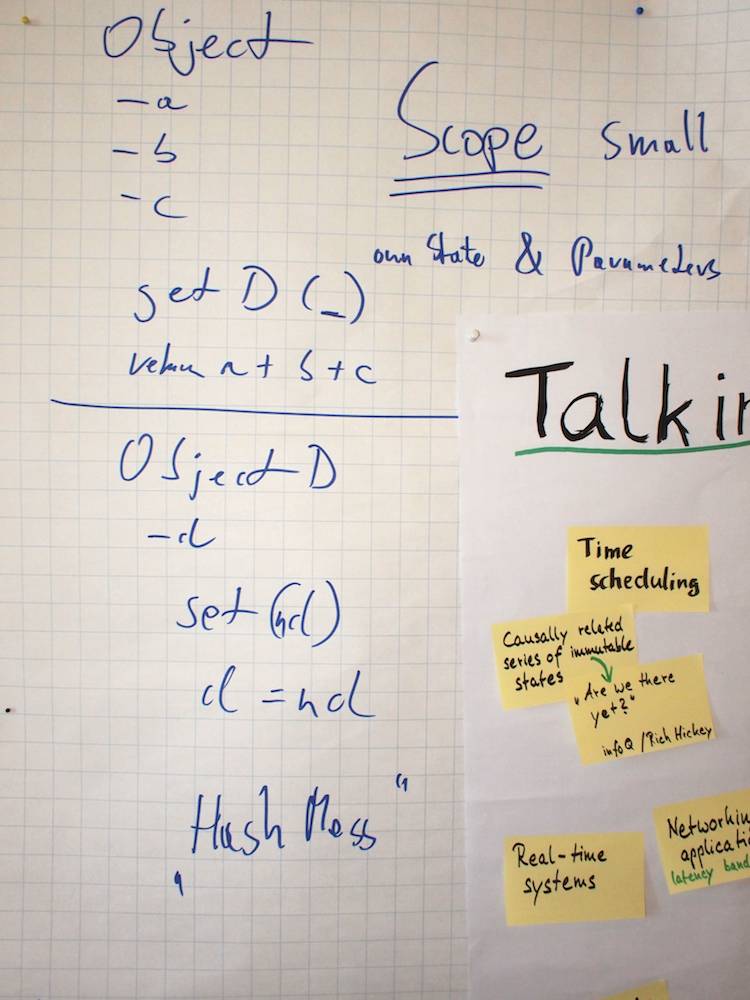 Object
- a
- b
- c
Scope small
own State & Parameters
get D (_)
return a + b + c
Object D
- d
set (nd)
d = nd
"Hash Mess"
Talkin
Time
scheduling
Causally related
series of immutable
states
"Are we there
yet?"
infoQ / Rich Hickey
Real-time
systems
Networkin
applicatio
latency band